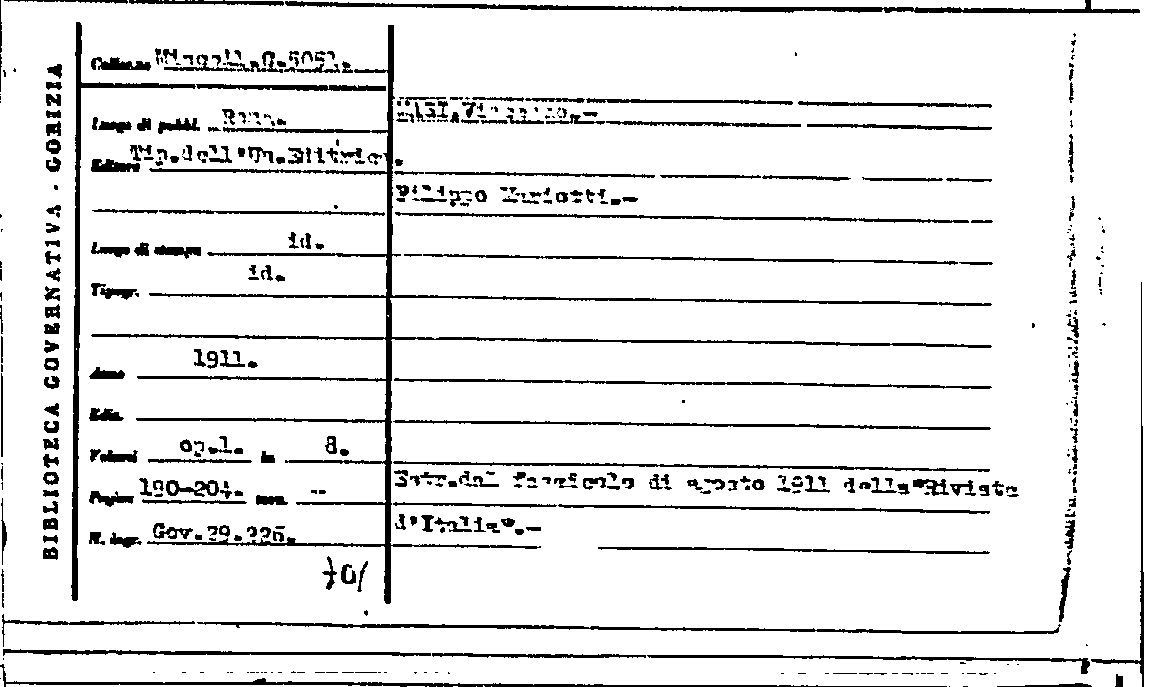 BIBLIOTECA GOVERNATIVA - GORIZIA
Colloc.ne Miscell.C.5051.
Luogo di pubbl. Roma.
Editore Tip.dell'Un.Editrice.
Luogo di stampa id.
Tipogr. id.
Anno 1911.
Ediz.
Volumi op.1. in 8.
Pagine 190-204. tav. --
N. ingr. Gov.29.226.
Vincenzo.-
Filippo Mariotti.-
Estr.dal fascicolo di agosto 1911 della"Rivista
d'Italia".-